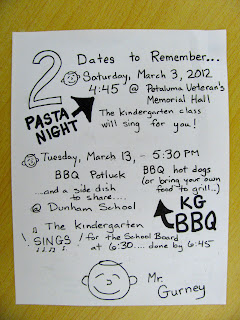 2 Dates to Remember...
Saturday, March 3, 2012
4:45 @ Petaluma Veteran's
Memorial Hall
PASTA
NIGHT
The kindergarten class
will sing for you!
Tuesday, March 13, - 5:30 PM
BBQ Potluck
...and a side dish
to share....
@ Dunham School
BBQ hot dogs
(or bring your own
food to grill...)
KG
BBQ
The Kindergarten
SINGS for the School Board
at 6:30.... done by 6:45
Mr.
Gurney